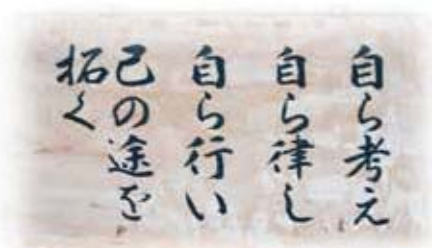 自ら考え
自ら律し
自ら行い
己の途を
拓く